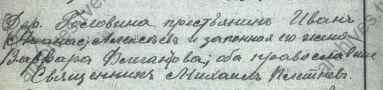 Дер. Головина крестьянинъ Иванъ
Алексѣевъ и законная его жена
Варвара оба православные
Священникъ Михаилъ Плетневъ.